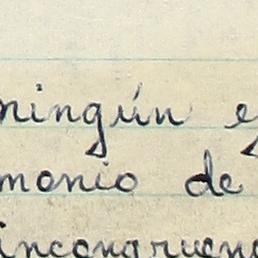 ningún e
monio de
incongruen